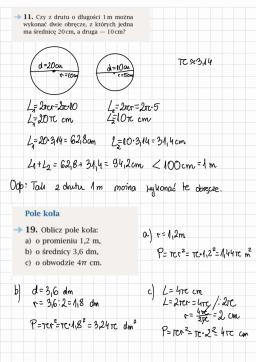 11. Czy z drutu o długości 1 m można
wykonać dwie obręcze, z których jedna
ma średnicę 20 cm, a druga — 10 cm?
d=20cm
r=10cm
d=10cm
r=5cm
π≈3,14
L₁=2πr=2π·10
L₁=20π cm
L₂=2πr=2π·5
L₂=10π cm
L₁=20·3,14=62,8cm
L₂=10·3,14=31,4cm
L₁+L₂=62,8+31,4=94,2cm < 100cm=1m
Odp: Tak z drutu 1m można wykonać te obręcze.
Pole koła
19. Oblicz pole koła:
a) o promieniu 1,2 m,
b) o średnicy 3,6 dm,
c) o obwodzie 4π cm.
a) r=1,2m
P=πr²=π·1,2²=1,44π m²
b) d=3,6 dm
r=3,6:2=1,8 dm
P=πr²=π·1,8²=3,24π dm²
c) L=4π cm
L=2πr=4π /:2π
r=4π/2π=2 cm
P=πr²=π·2²=4π cm